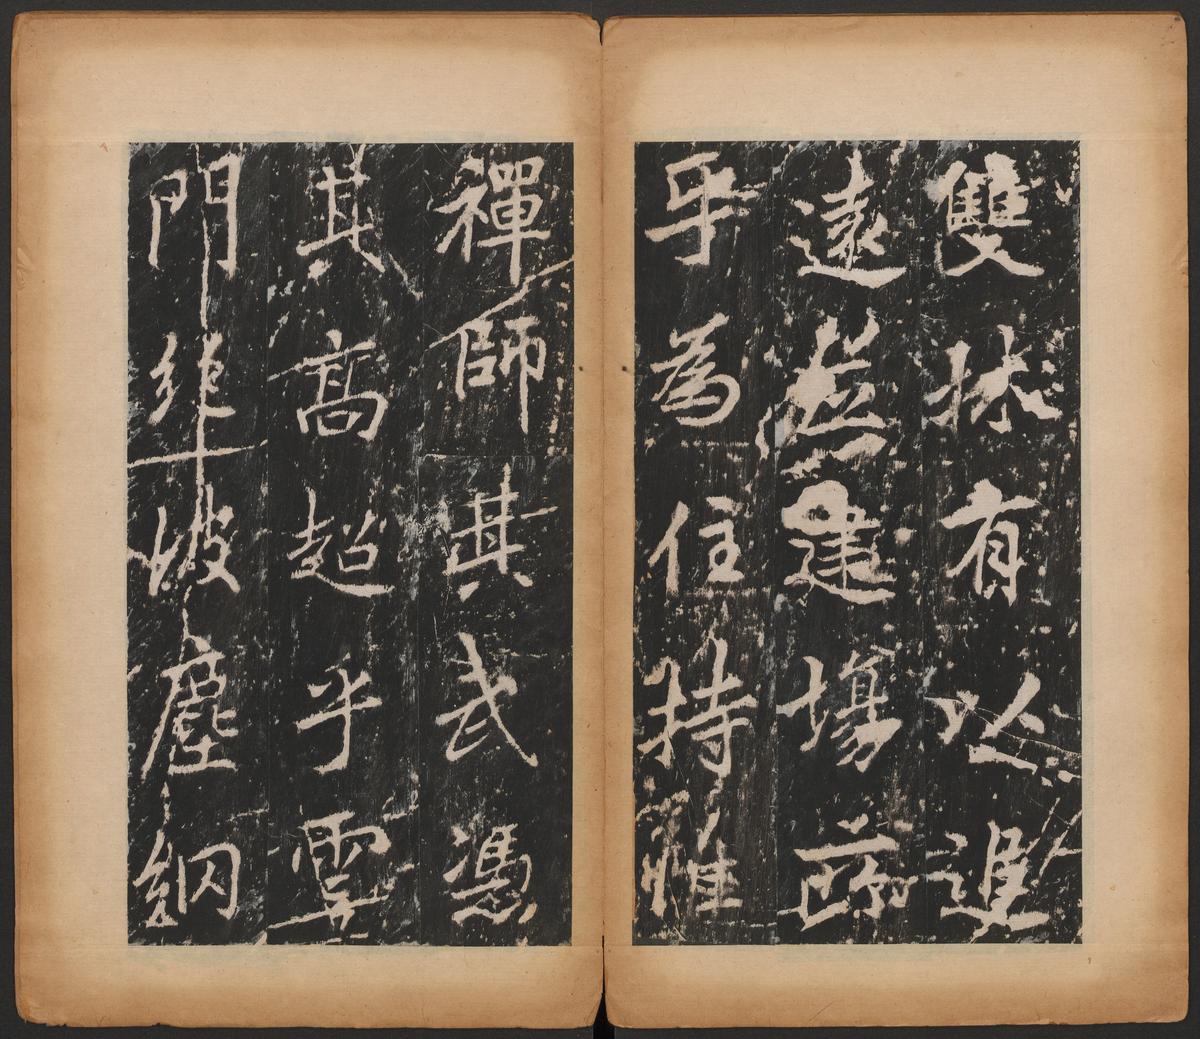 雙林有以追
遠並建場所
互為住持惟
禪師其武憑
其高超乎雲
門絕彼塵網